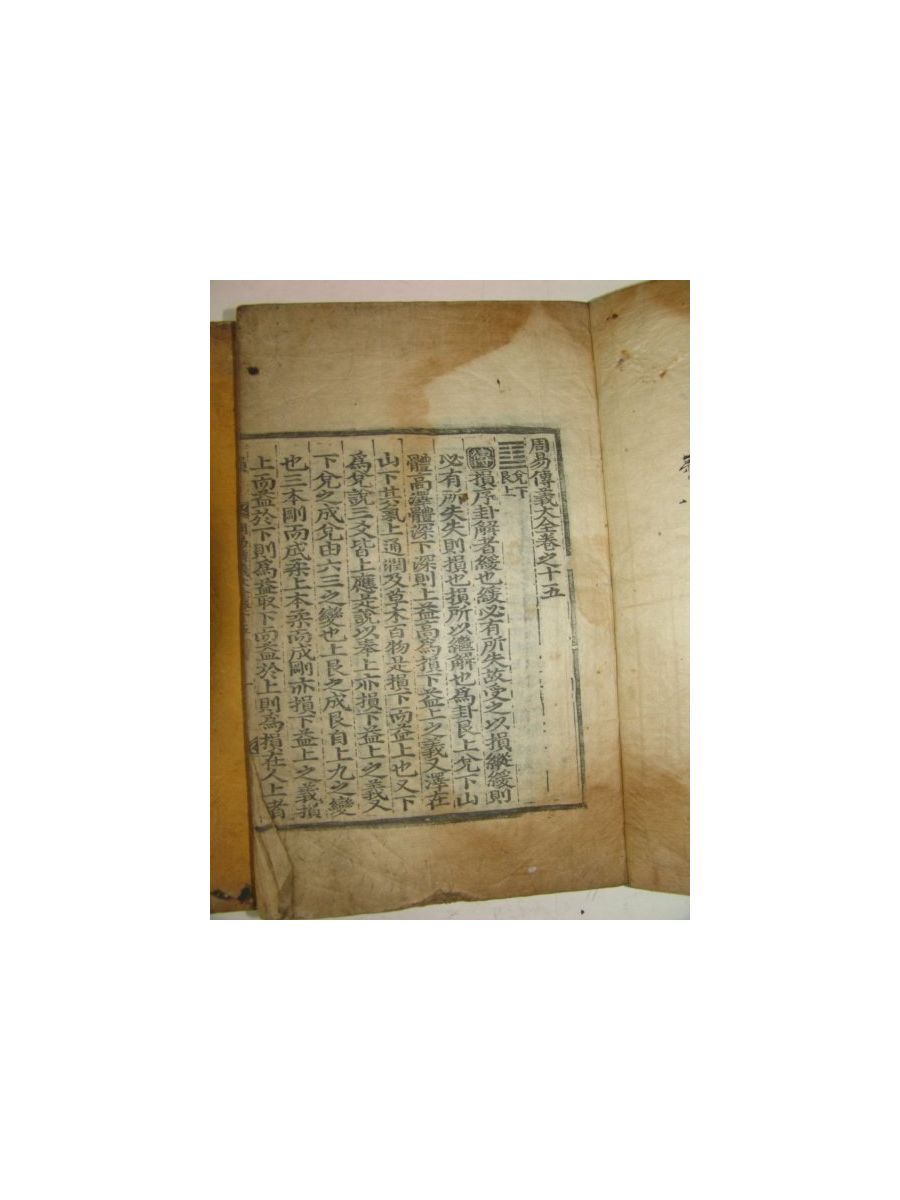 周易傳義大全卷之十五
䷨ 兌下 艮上
傳 損序卦解者緩也緩必有所失故受之以損縱緩則
必有所失失則損也損所以繼解也爲卦艮上兌下山
體高澤體深下深則上益高爲損下益上之義又澤在
山下其氣上通潤及草木百物是損下而益上也又下
爲兌說三爻皆上應是說以奉上亦損下益上之義又
下兌之成兌由六三之變也上艮之成艮自上九之變
也三本剛而成柔上本柔而成剛亦損下益上之義損
上而益於下則爲益取下而益於上則爲損在人上者